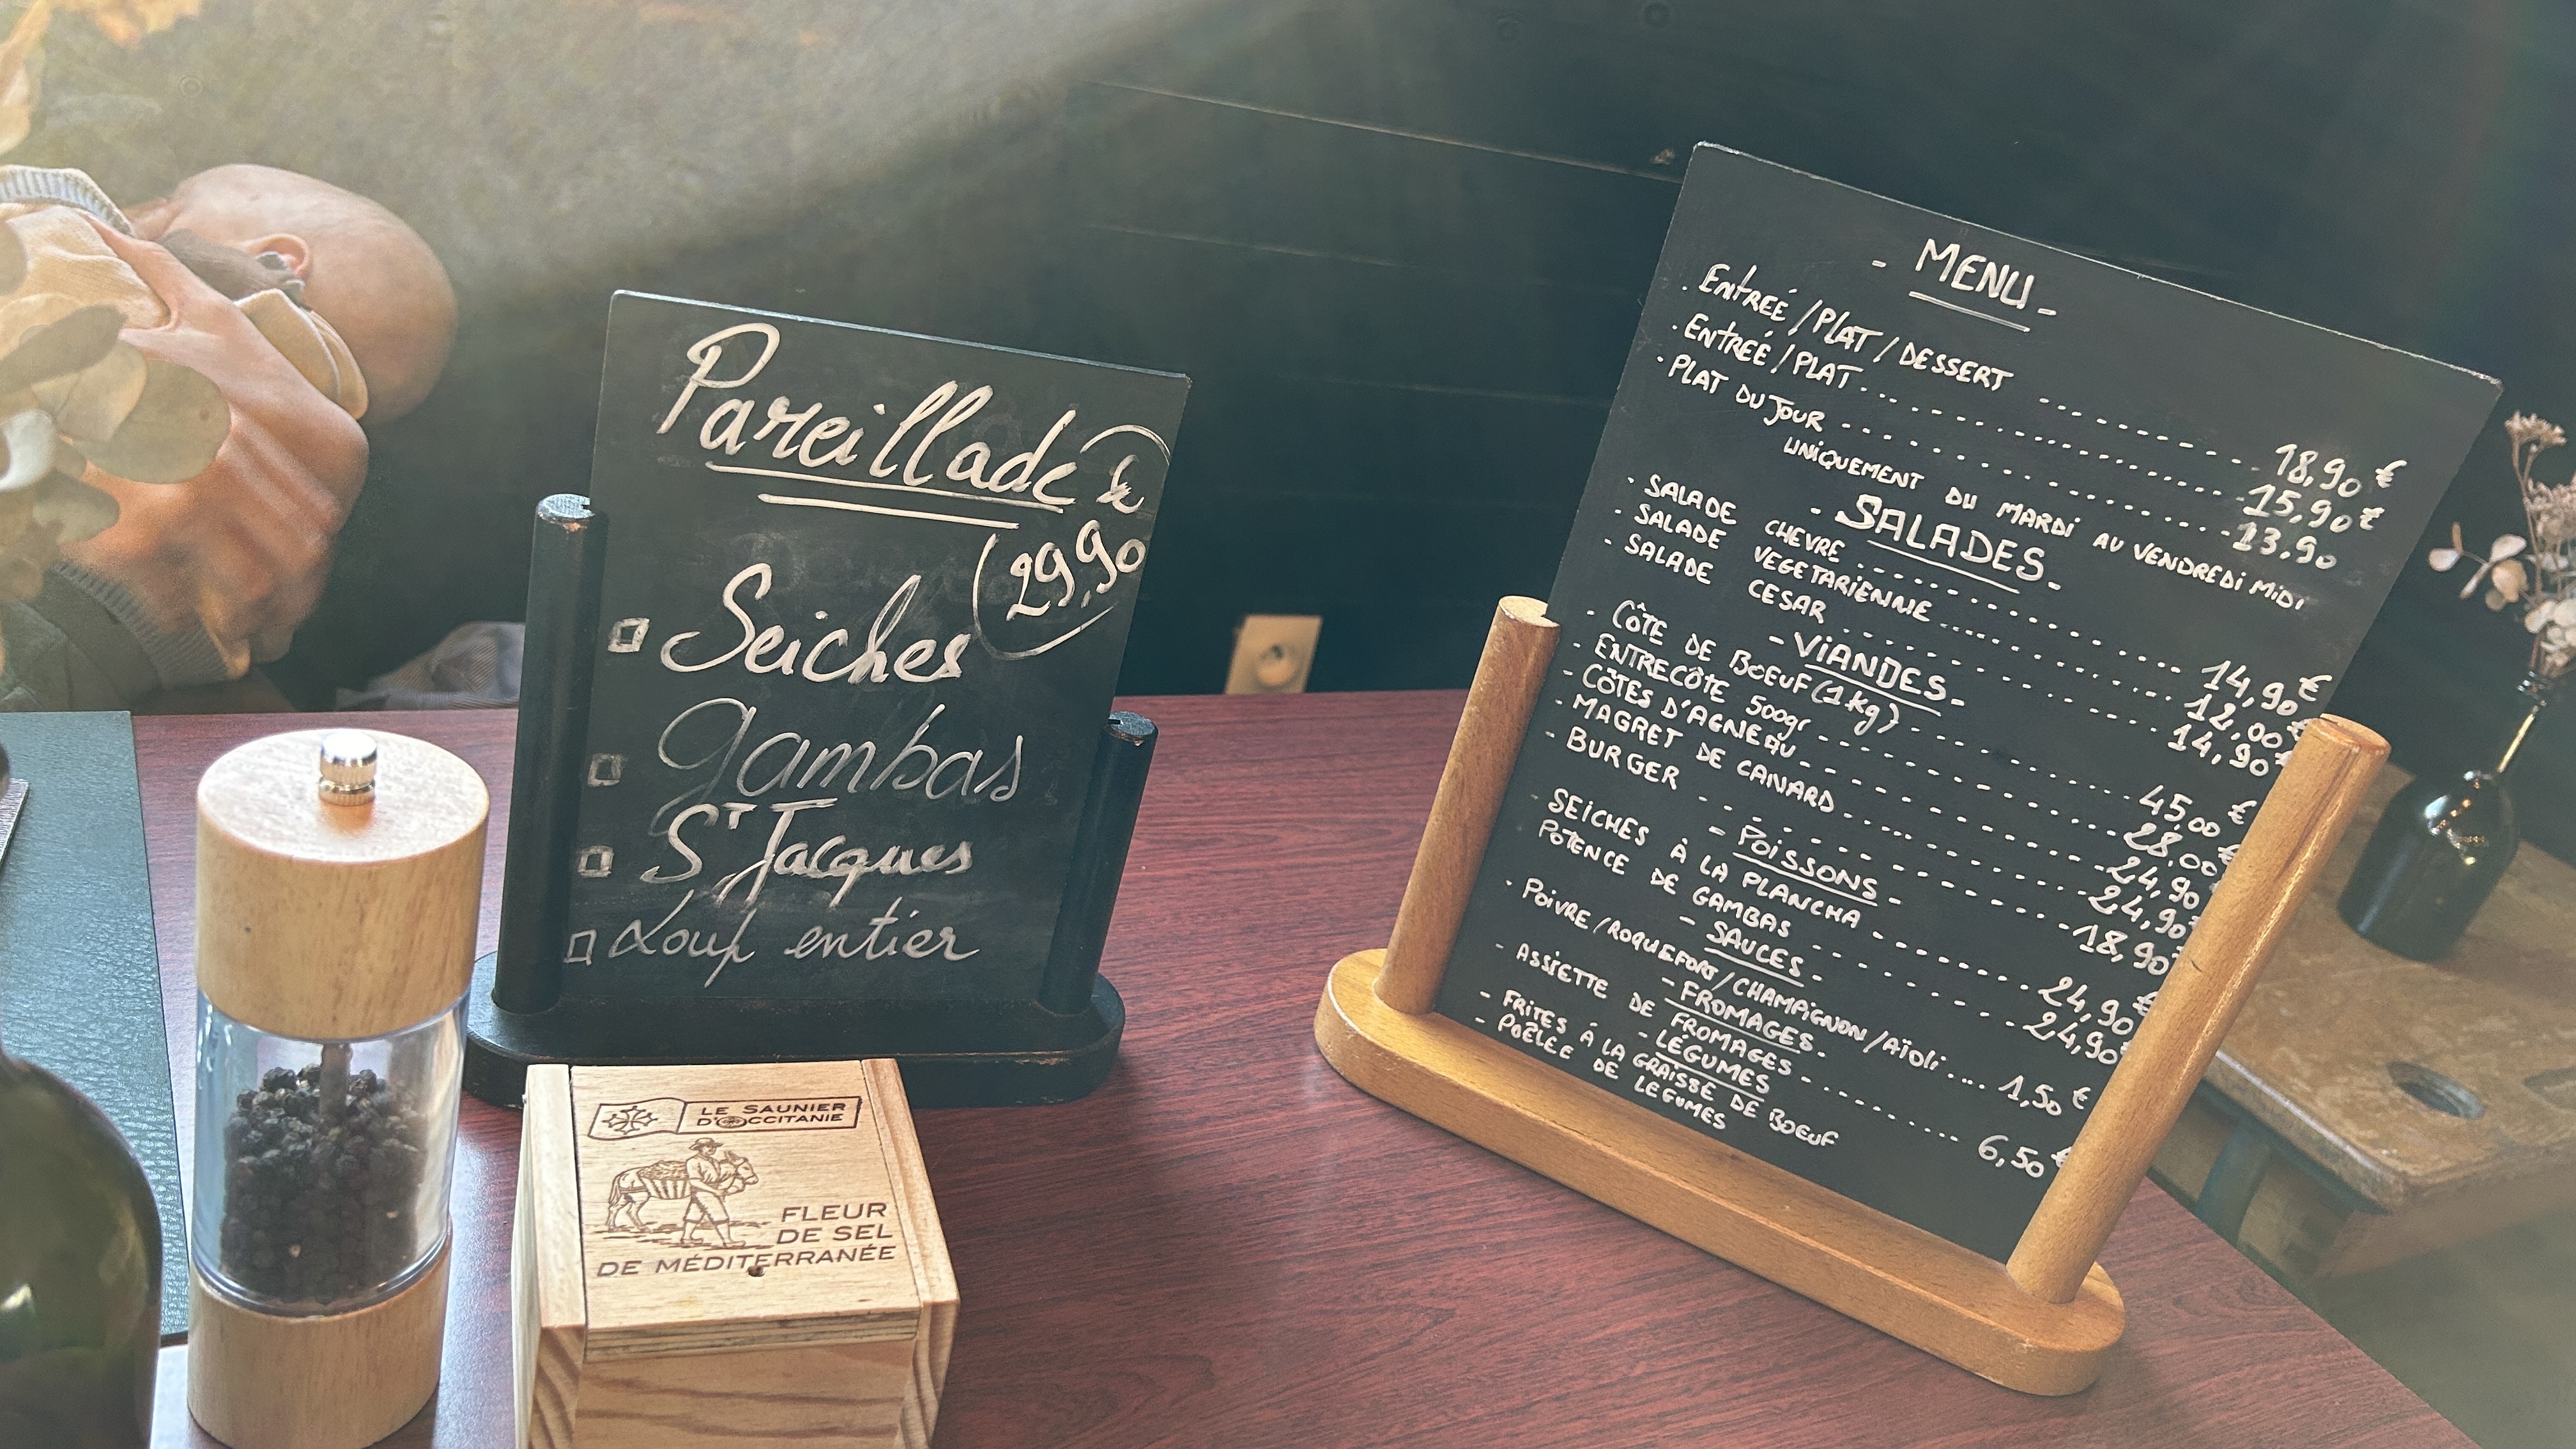 Pareillade de
29,90
Seiches
Gambas
ST Jacques
Loup entier
LE SAUNIER
D'OCCITANIE
FLEUR
DE SEL
DE MÉDITERRANÉE
- MENU -
. ENTREÉ / PLAT / DESSERT ........ 18,90 €
. ENTREÉ / PLAT ........ 15,90 €
. PLAT DU JOUR ........ 13,90
UNIQUEMENT DU MARDI AU VENDREDI MIDI
- SALADES -
. SALADE CHEVRE ........ 14,90 €
. SALADE VEGETARIENNE ........ 12,00 €
. SALADE CESAR ........ 14,90 €
- VIANDES -
- CÔTE DE BOEUF (1kg) ........ 45,00 €
- ENTRECÔTE 500gr ........ 28,00 €
- CÔTES D'AGNEAU ........ 24,90 €
- MAGRET DE CANARD ........ 24,90 €
- BURGER ........ 18,90 €
- POISSONS -
SEICHES À LA PLANCHA ........ 24,90 €
POTENCE DE GAMBAS ........ 24,90 €
- SAUCES -
. POIVRE / ROQUEFORT / CHAMPIGNON / AÏOLI .... 1,50 €
- FROMAGES -
- ASSIETTE DE FROMAGES ........ 6,50 €
- LÉGUMES
- FRITES À LA GRAISSE DE BOEUF
- POÊLÉE DE LEGUMES